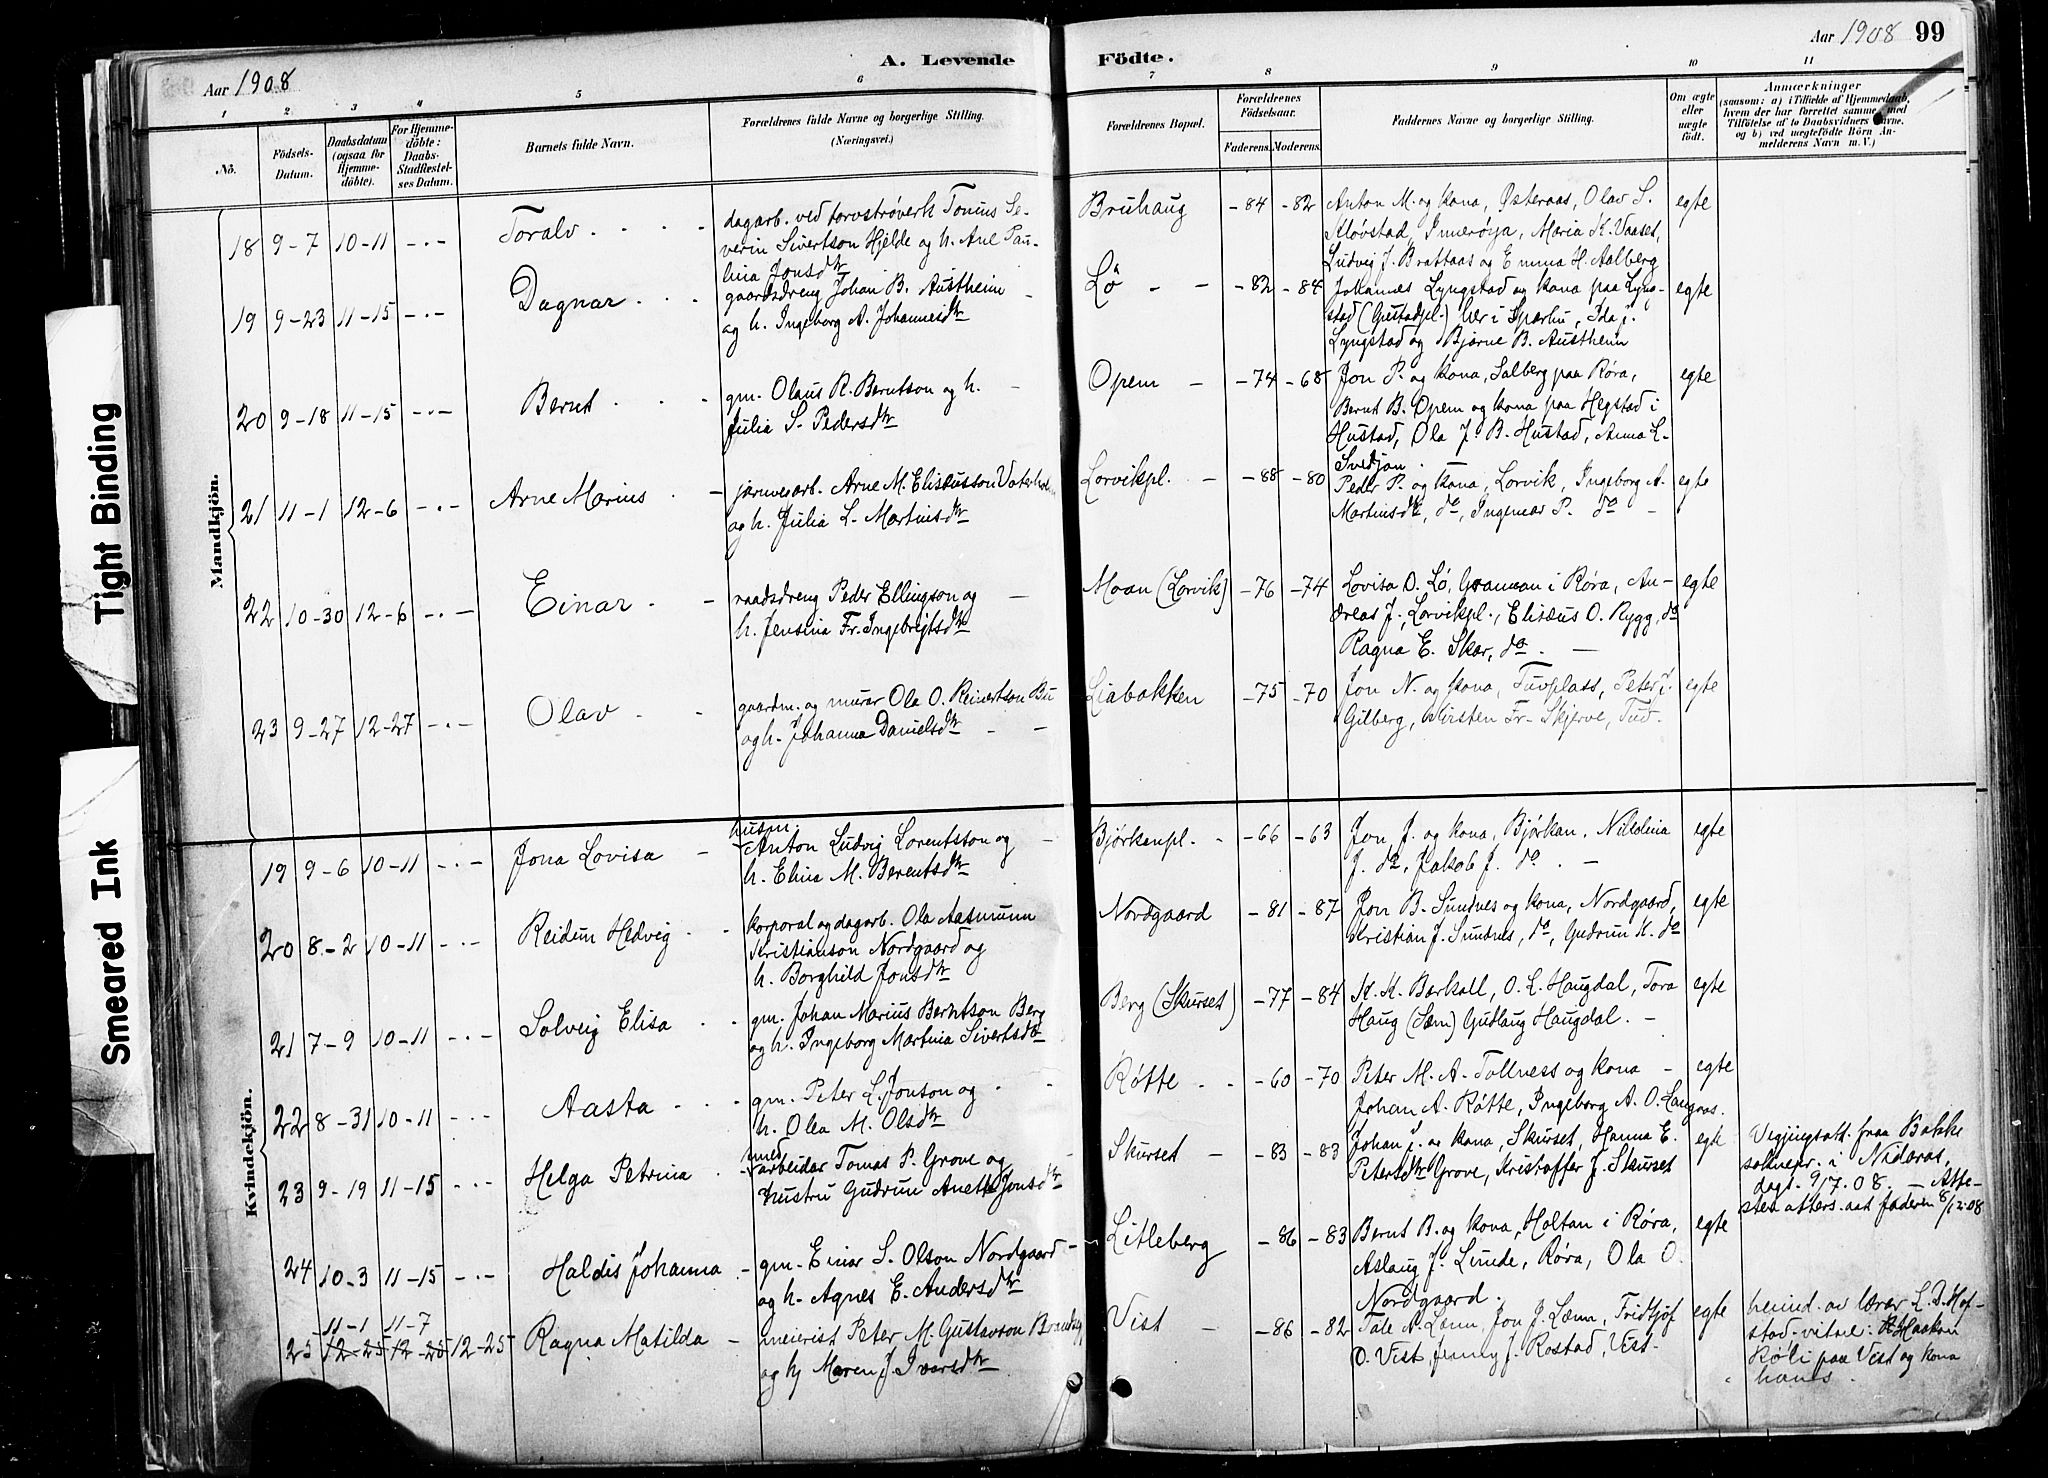 Aar 1908
A. Levende
Födte.
Aar 1908 99
1 2 3 4 5 6 7 8 9 10 11
No.
Födsels-
Datum.
Daabsdatum
(ogsaa for
Hjemme-
döbte).
For Hjemme-
döbte:
Daabs-
Stadfæstel-
ses Datum.
Barnets fulde Navn.
Forældrenes fulde Navne og borgerlige Stilling.
(Næringsvei.)
Forældrenes Bopæl.
Forældrenes
Födselsaar.
Faderens. Moderens.
Faddernes Navne og borgerlige Stilling.
Om ægte
eller
uægte
födt.
Anmærkninger
(saasom: a) i Tilfælde af Hjemmedaab,
hvem der har forrettet samme, med
Tilföielse af to Daabsvidners Navne,
og b) ved uægtefödte Börn An-
melderens Navn m. V.)
Tight Binding
Smeared Ink
Mandkjön.
18 9-7 10-11 -.- Toralv
dagarb. ved torvstrøverk Tonius Se-
verin Sivertson Hjelde og h. Ane Pau-
lina Jonsdtr
Bruhaug -84 -82
Anton M. og kona, Østeraas, Olav S.
Kløvstad, Innerøya, Maria K. Vaases,
Ludvig J. Brattaas og Emma H. Aalberg
egte
19 9-23 11-15 -.- Dagnar
gaardsdreng Johan B. Austheim
og h. Ingeborg A. Johannesdtr
Lø -82 -84
Johannes Lyngstad og kona paa Lyng-
stad (Gustadpl.) her i Sparbu, Ida J.
Lyngstad og Bjarne B. Austheim
egte
20 9-18 11-15 -.- Bernt
gm. Olaus R. Berntson og h.
Julia S. Pedersdtr
Opem -74 -68
Jon P. og kona, Salberg paa Røra,
Bernt B. Opem og kona paa Hegstad i
Hustad, Ola J. B. Hustad, Anna L.
Svedjan.
egte
21 11-1 12-6 -.- Arne Marius
jarnvegarb. Arne M. Eliseusson Vaterholm
og h. Julia L. Martinsdtr
Lorvikpl. -88 -80
Peder P. og kona, Lorvik, Ingeborg A.
Martinsdtr, do, Ingemar P. do
egte
22 10-30 12-6 -.- Einar
raadsdreng Peder Ellingson og
h. Jensina Fr. Ingebrigtsdtr
Moan (Lorvik) -76 -74
Lovisa O. Lø, Granaan i Røra, An-
dreas J. Lorvikpl., Elisæus O. Rygg, do
Ragna E. Skar, do.
egte
23 9-27 12-27 -.- Olav
gaardm. og murar Ola O. Reinertson Bu
og h. Johanna Danielsdtr
Liabakken -75 -70
Jon N. og kona, Tuvplass, Peter J.
Gilberg, Kirsten Fr. Skjerve, Tuv.
egte
Kvindekjön.
19 9-6 10-11 -.- Jona Lovisa
husm.
Anton Ludvig Lorentsson og
h. Elina M. Berentsdtr
Bjørkanpl. -66 -63
Jon J. og kona, Bjørkan, Nikolina
J. do, Jakob J. do.
egte
20 8-2 10-11 -.- Reidun Hedvig
korporal og dagarb. Ola Aasmunn
Kristianson Nordgaard og
h. Borghild Jonsdtr
Nordgaard -81 -87
Jon B. Sundnes og kona, Nordgaard,
Kristian J. Sundnes, do, Gudrun K. do
egte
21 7-9 10-11 -.- Solveig Elisa
gm. Johan Marius Berntson Berg
og h. Ingeborg Martina Sivertsdtr
Berg (Skurset) -77 -84
K. K. Barkall, O. L. Haugdal, Tora
Haug (Sæm) Gudlaug Haugdal.
egte
22 8-31 10-11 -.- Aasta
gm. Peter L. Jonson og
h. Olea M. Olsdtr
Røtte -60 -70
Peter M. A. Tollness og kona
Johan A. Røtte, Ingeborg A. O. Haugaas.
egte
23 9-19 11-15 -.- Helga Petrina
med
arbeidar Tomas P. Grove og
hustru Gudrun Anette Jonsdtr
Skurset -83 -83
Johan J. og kona, Skurset, Hanna E.
Petersdtr Grove, Kristoffer J. Skurset
egte
Vigjingsatt. fraa Bakke
soknepr. i Nidaros,
dagt. 9/7.08. - Atte-
sten atters. aat faderen 8/12.08
24 10-3 11-15 -.- Haldis Johanna
gm. Einar S. Olson Nordgaard
og h. Agnes E. Andersdtr
Litleberg -86 -83
Bernt B. og kona, Holtan i Røra,
Aslaug J. Linde, Røra, Ola O.
Nordgaard.
egte
11-1 11-7
25 12-25 12-25 12-25 Ragna Matilda
meierist Peter M. Gustavson
og h. Maren J. Ivarsdtr
Vist -86 -82
Tale A. Læm, Jon J. Læm, Fridtjof
O. Vist, Jenny J. Rostad, Vist.
egte
heimd. av lærer L. D. Hof-
stad. vitne: Haakon
Røli paa Vist og kona
hans.